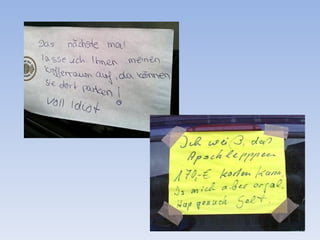 Das nächste mal
lasse ich Ihnen meinen
Kofferraum auf, da können
sie dort parken!
Voll Idiot
Ich weiß, das
Apschlepppen
170,-€ kosten kann.
Is mich aber ehgal.
Hap genuch Gelt.